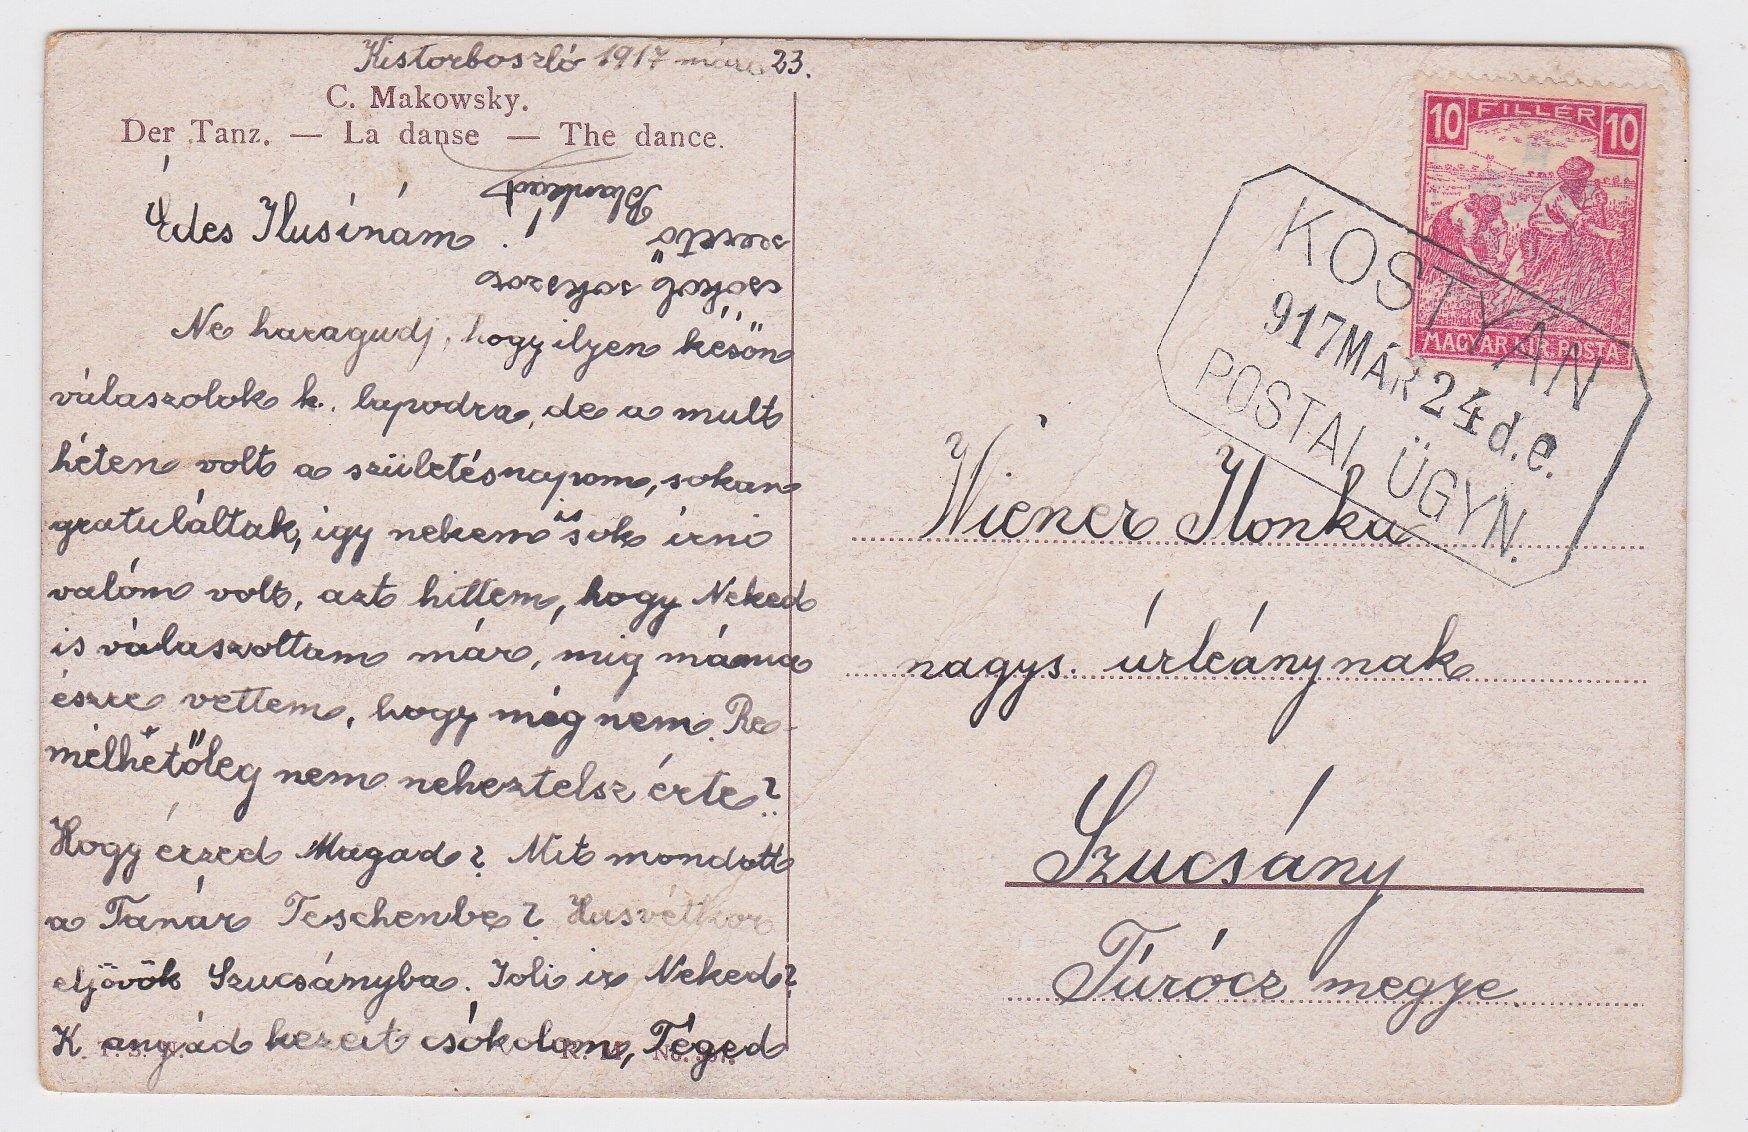 Kistorboszló 1917 márc 23.
C. Makowsky.
Der Tanz. — La danse — The dance.
Édes Ilusínám!
Ne haragudj, hogy ilyen későn
válaszolok k. lapodra, de a mult
héten volt a születésnapom, sokan
gratuláltak, igy nekem is sok irni
valóm volt, azt hittem, hogy Neked
is válaszoltam már, mig máma
észre vettem, hogy még nem. Re-
mélhetőleg nem neheztelsz érte?
Hogy érzed Magad? Mit mondott
a Tanár Teschenbe? Husvétkor
eljövök Szucsányba. Joli ir Neked?
K. anyád kezeit csókolom, Téged
szerető
Blankád
10 FILLÉR 10
MAGYAR KIR. POSTA
KOSTYÁN
917 MÁR 24 d.e.
POSTAI ÜGYN.
Wiener Ilonka
nagys. úrleánynak
Szucsány
Túrócz megye.